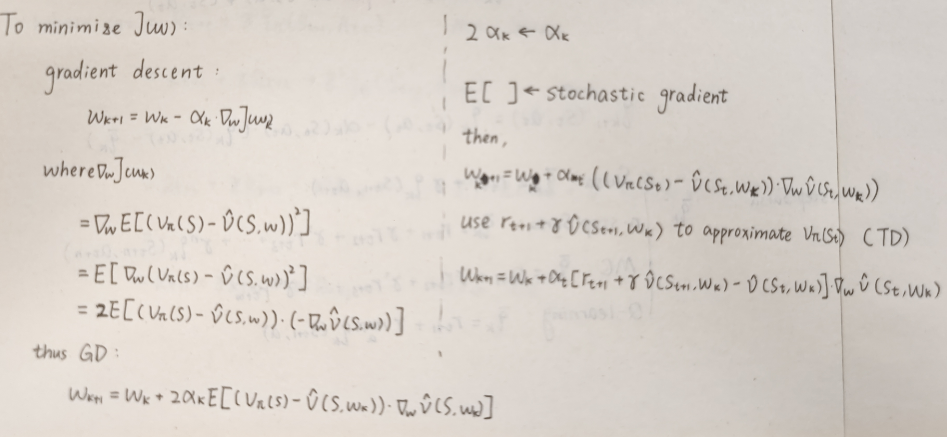 To minimize J(w):
gradient descent:
w_{k+1} = w_k - α_k · ∇_w J(w_k)
where ∇_w J(w_k)
= ∇_w E[(V_π(S) - V̂(S,w))²]
= E[∇_w (V_π(S) - V̂(S,w))²]
= 2E[(V_π(S) - V̂(S,w)) · (-∇_w V̂(S,w))]
thus GD:
w_{k+1} = w_k + 2α_k E[(V_π(S) - V̂(S,w_k)) · ∇_w V̂(S,w_k)]
2α_k ← α_k
E[ ] ← stochastic gradient
then,
w_{k+1} = w_k + α_t ((V_π(S_t) - V̂(S_t,w_k)) · ∇_w V̂(S_t,w_k))
use r_{t+1} + γ V̂(S_{t+1},w_k) to approximate V_π(S_t) (TD)
w_{k+1} = w_k + α_t [r_{t+1} + γ V̂(S_{t+1},w_k) - V̂(S_t,w_k)] · ∇_w V̂(S_t,w_k)